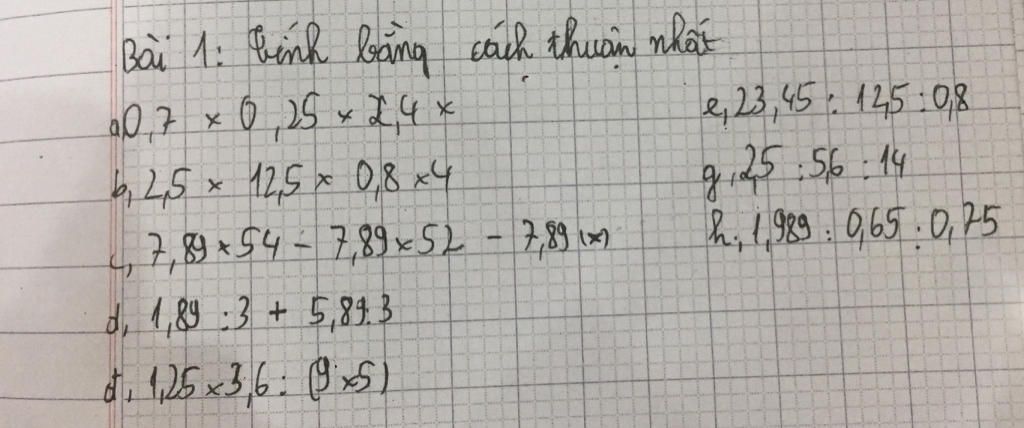 Bài 1: Tính bằng cách thuận nhất
a, 0,7 x 0,25 x 2,4 x
b, 2,5 x 12,5 x 0,8 x 4
c, 7,89 x 54 - 7,89 x 52 - 7,89 (x)
d, 1,89 : 3 + 5,89 : 3
đ, 1,25 x 3,6 : (9 x 5)
e, 23,45 : 12,5 : 0,8
g, 2,5 : 5,6 : 14
h, 1,989 : 0,65 : 0,75